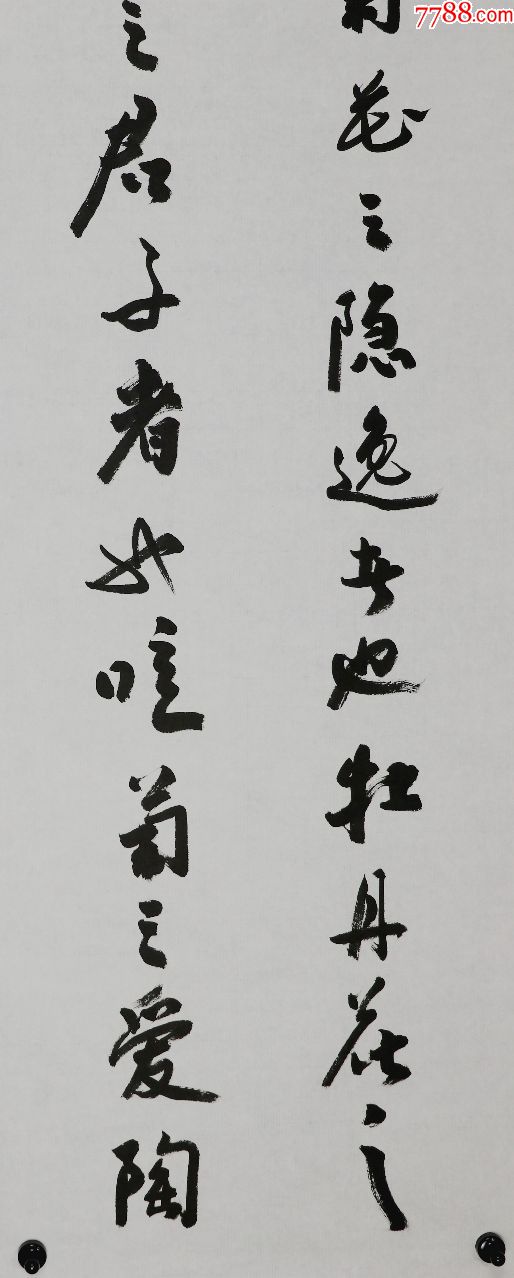 7788.com
花之隐逸者也牡丹花之
之君子者也噫菊之爱陶